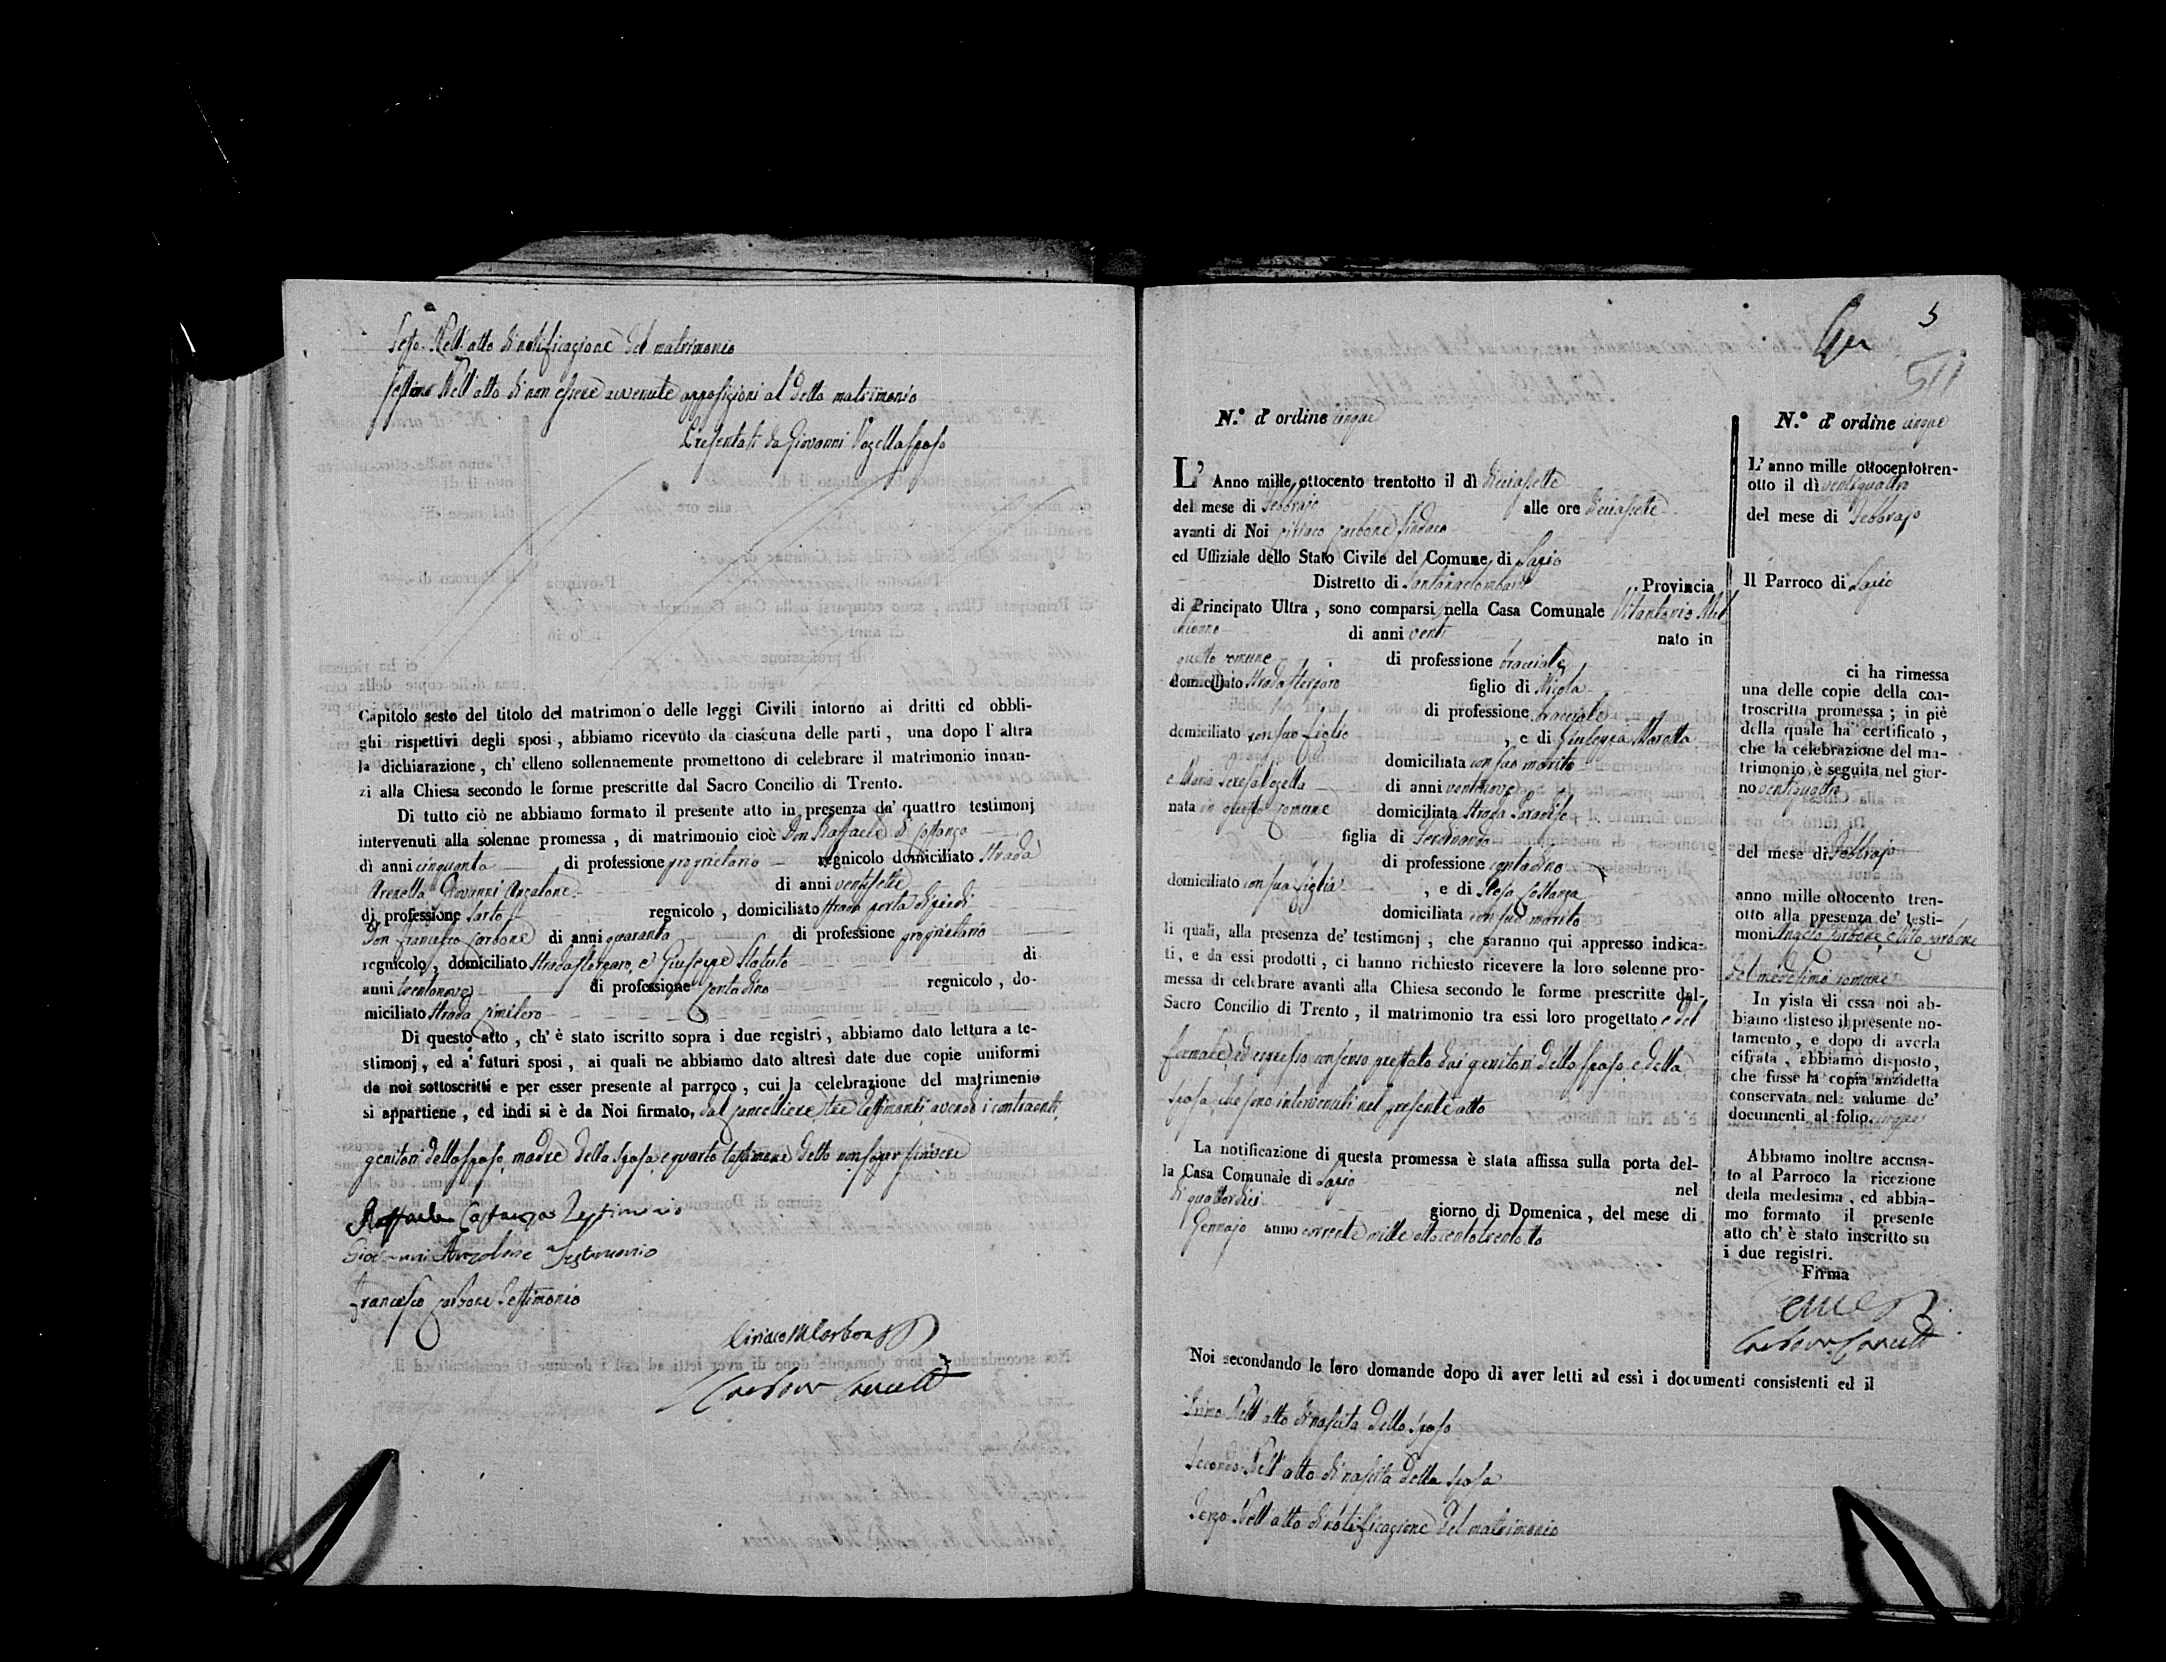 Sesto. Nell'atto di notificazione del matrimonio
Settimo Nell'atto di non essere avvenute opposizioni al detto matrimonio
Presentati da Giovanni Vozella sposo
Capitolo sesto del titolo del matrimonio delle leggi Civili intorno ai dritti ed obbli-
ghi rispettivi degli sposi, abbiamo ricevuto da ciascuna delle parti, una dopo l'altra
la dichiarazione, ch'elleno sollennemente promettono di celebrare il matrimonio innan-
zi alla Chiesa secondo le forme prescritte dal Sacro Concilio di Trento.
Di tutto ciò ne abbiamo formato il presente atto in presenza de' quattro testimonj
intervenuti alla solenne promessa, di matrimonio cioè Don Raffaele di Costanzo
di anni cinquanta di professione proprietario regnicolo domiciliato Strada
Arenella Giovanni Anzalone di anni ventisette
di professione sarto regnicolo, domiciliato strada porta di piedi
Don Francesco Carbone di anni quaranta di professione proprietario
regnicolo, domiciliato Strada Stercaro, e Giuseppe Statuto di
anni trentanove di professione contadino regnicolo, do-
miciliato Strada Cimitero
Di questo atto, ch'è stato iscritto sopra i due registri, abbiamo dato lettura a te-
stimonj, ed a' futuri sposi, ai quali ne abbiamo dato altresì date due copie uniformi
da noi sottoscritti e per esser presente al parroco, cui la celebrazione del matrimenio
si appartiene, ed indi si è da Noi firmato, dal cancelliere, tre testimonij avendo i contraenti,
genitori dello sposo, madre della sposa, e quarto testimone detto non saper scrivere
Raffaele Costanzo Testimonio
Giovanni Anzalone Testimonio
Francesco Carbone Testimonio
Ciriaco M Carbone
Carbone Cancell
5
N.° d' ordine cinque
L' Anno mille ottocento trentotto il dì diciassette
del mese di Febbrajo alle ore diciassette
avanti di Noi Ciriaco Carbone Sindaco
ed Uffiziale dello Stato Civile del Comune di Lazio
Distretto di Santangelombardi Provincia
di Principato Ultra, sono comparsi nella Casa Comunale Vitantonio
di anni venti nato in
questo comune di professione bracciale
domiciliato strada Stercaro figlio di Nicola
di professione bracciale
domiciliato con suo figlio, e di Vincenza Marotta
domiciliata con suo marito
e Maria Teresa Vozella di anni ventinove
nata in questo comune domiciliata strada Paradiso
figlia di Ferdinando
di professione contadino
domiciliato con sua figlia, e di Rosa Costanza
domiciliata con suo marito
li quali, alla presenza de' testimonj, che saranno qui appresso indica-
ti, e da essi prodotti, ci hanno richiesto ricevere la loro solenne pro-
messa di celebrare avanti alla Chiesa secondo le forme prescritte dal-
Sacro Concilio di Trento, il matrimonio tra essi loro progettato e del
formale, ed espresso consenso prestato dai genitori dello sposo e della
sposa che sono intervenuti nel presente atto
La notificazione di questa promessa è stata affissa sulla porta del-
la Casa Comunale di Lazio nel
di quattordici giorno di Domenica, del mese di
Gennajo anno corrente mille ottocento trentotto
N.° d' ordine cinque
L' anno mille ottocentotren-
otto il dì ventiquattro
del mese di Febbrajo
Il Parroco di Lazio
ci ha rimessa
una delle copie della con-
troscritta promessa; in piè
della quale ha certificato,
che la celebrazione del ma-
trimonio è seguita nel gior-
no ventiquattro
del mese di Febbrajo
anno mille ottocento tren-
otto alla presenza de' testi-
moni Angelo Carbone, e Vito Carbone
del medesimo comune
In vista di essa noi ab-
biamo disteso il presente no-
tamento, e dopo di averla
cifrata, abbiamo disposto,
che fusse la copia anzidetta
conservata nel volume de'
documenti al folio cinque
Abbiamo inoltre accusa-
to al Parroco la ricezione
della medesima, ed abbia-
mo formato il presente
atto ch'è stato inscritto su
i due registri.
Firma
Carbone Cancell
Noi secondando le loro domande dopo di aver letti ad essi i documenti consistenti ed il
Primo Nell'atto di nascita dello sposo
Secondo Nell'atto di nascita della sposa
Terzo Nell'atto di notificazione del matrimonio